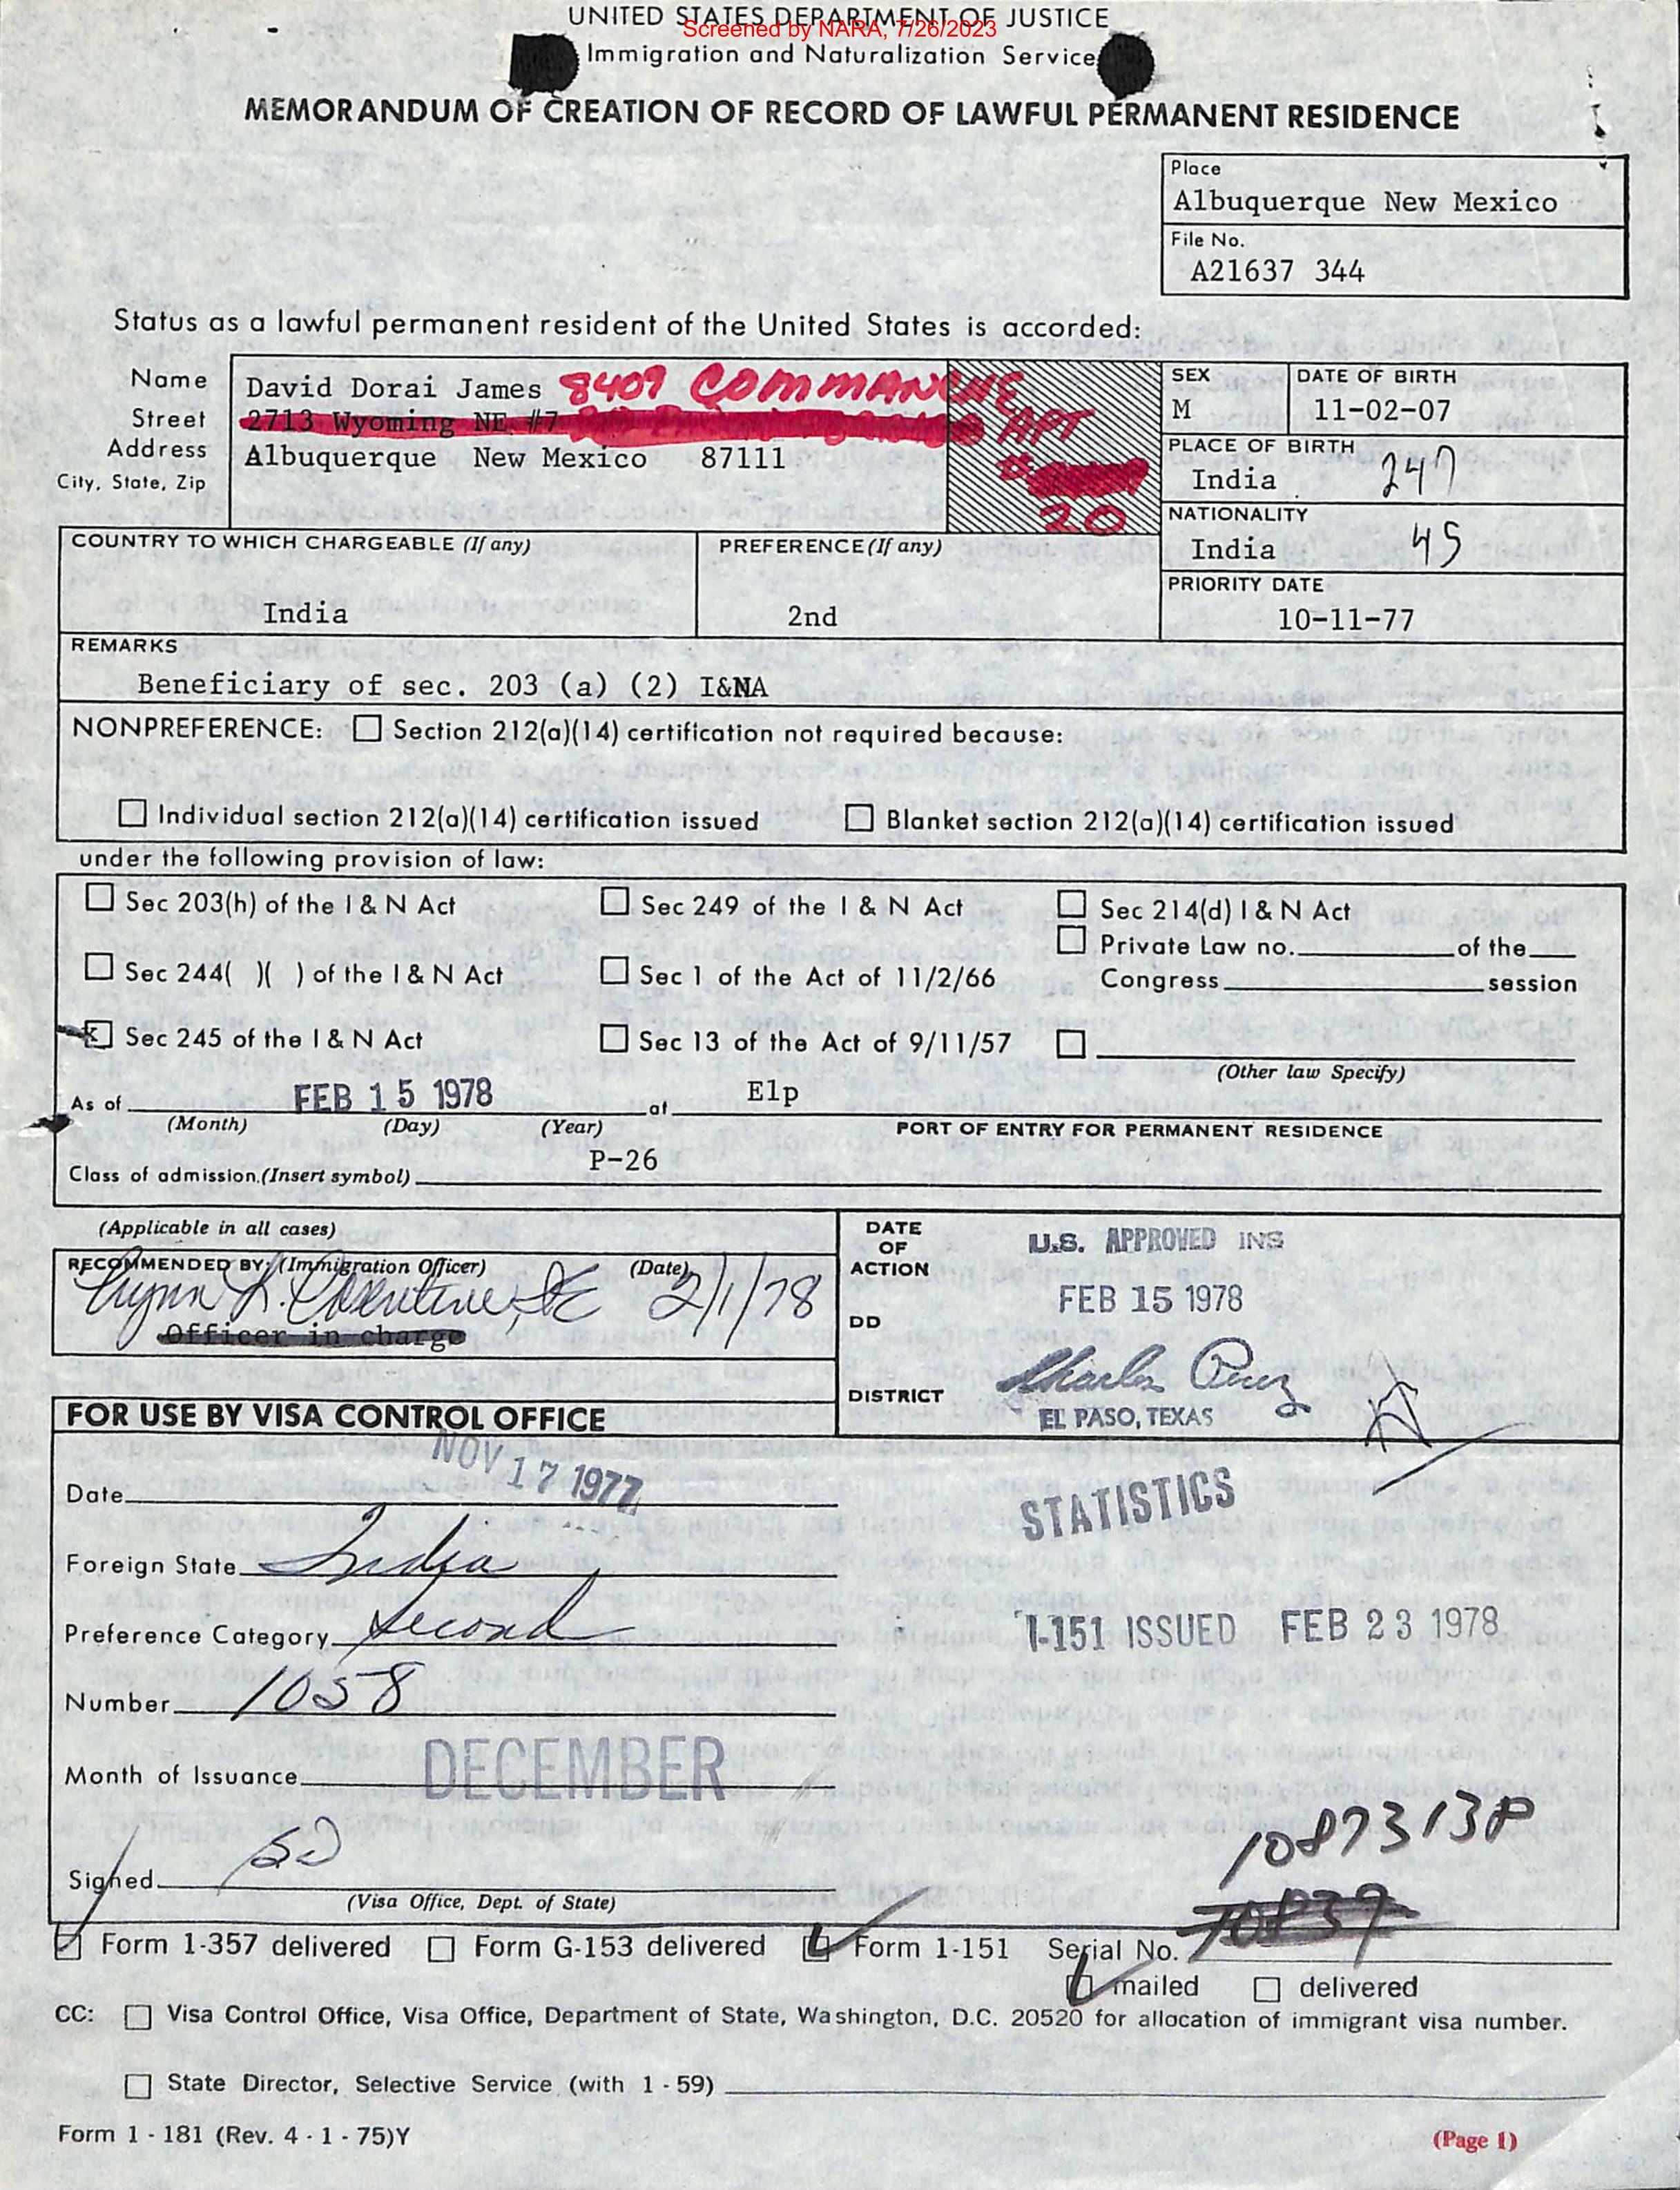 UNITED STATES DEPARTMENT OF JUSTICE
Screened by NARA, 7/26/2023
Immigration and Naturalization Service
MEMORANDUM OF CREATION OF RECORD OF LAWFUL PERMANENT RESIDENCE
Place
Albuquerque New Mexico
File No.
A21637 344
Status as a lawful permanent resident of the United States is accorded:
Name David Dorai James 8409 COMMANCHE
Street 2713 Wyoming NE #7 APT
Address Albuquerque New Mexico 87111 #
City, State, Zip 20
SEX M
DATE OF BIRTH 11-02-07
PLACE OF BIRTH
India 247
NATIONALITY
India 45
COUNTRY TO WHICH CHARGEABLE (If any)
India
PREFERENCE (If any)
2nd
PRIORITY DATE
10-11-77
REMARKS
Beneficiary of sec. 203 (a) (2) I&NA
NONPREFERENCE: Section 212(a)(14) certification not required because:
Individual section 212(a)(14) certification issued Blanket section 212(a)(14) certification issued
under the following provision of law:
Sec 203(h) of the I & N Act Sec 249 of the I & N Act Sec 214(d) I & N Act
Private Law no. of the
Sec 244( )( ) of the I & N Act Sec 1 of the Act of 11/2/66 Congress session
x Sec 245 of the I & N Act Sec 13 of the Act of 9/11/57
(Other law Specify)
As of FEB 15 1978 at Elp
(Month) (Day) (Year) PORT OF ENTRY FOR PERMANENT RESIDENCE
Class of admission.(Insert symbol) P-26
(Applicable in all cases)
RECOMMENDED BY: (Immigration Officer) (Date)
2/1/78
Officer in charge
DATE OF ACTION
U.S. APPROVED INS
FEB 15 1978
DD
Charles Perez
DISTRICT
EL PASO, TEXAS
FOR USE BY VISA CONTROL OFFICE
Date NOV 17 1977
STATISTICS
Foreign State India
Preference Category Second
I-151 ISSUED FEB 23 1978
Number 1058
Month of Issuance DECEMBER
1087313P
Signed
(Visa Office, Dept. of State)
Form 1-357 delivered Form G-153 delivered Form 1-151 Serial No.
mailed delivered
CC: Visa Control Office, Visa Office, Department of State, Washington, D.C. 20520 for allocation of immigrant visa number.
State Director, Selective Service (with 1 - 59)
Form 1 - 181 (Rev. 4 - 1 - 75)Y
(Page 1)